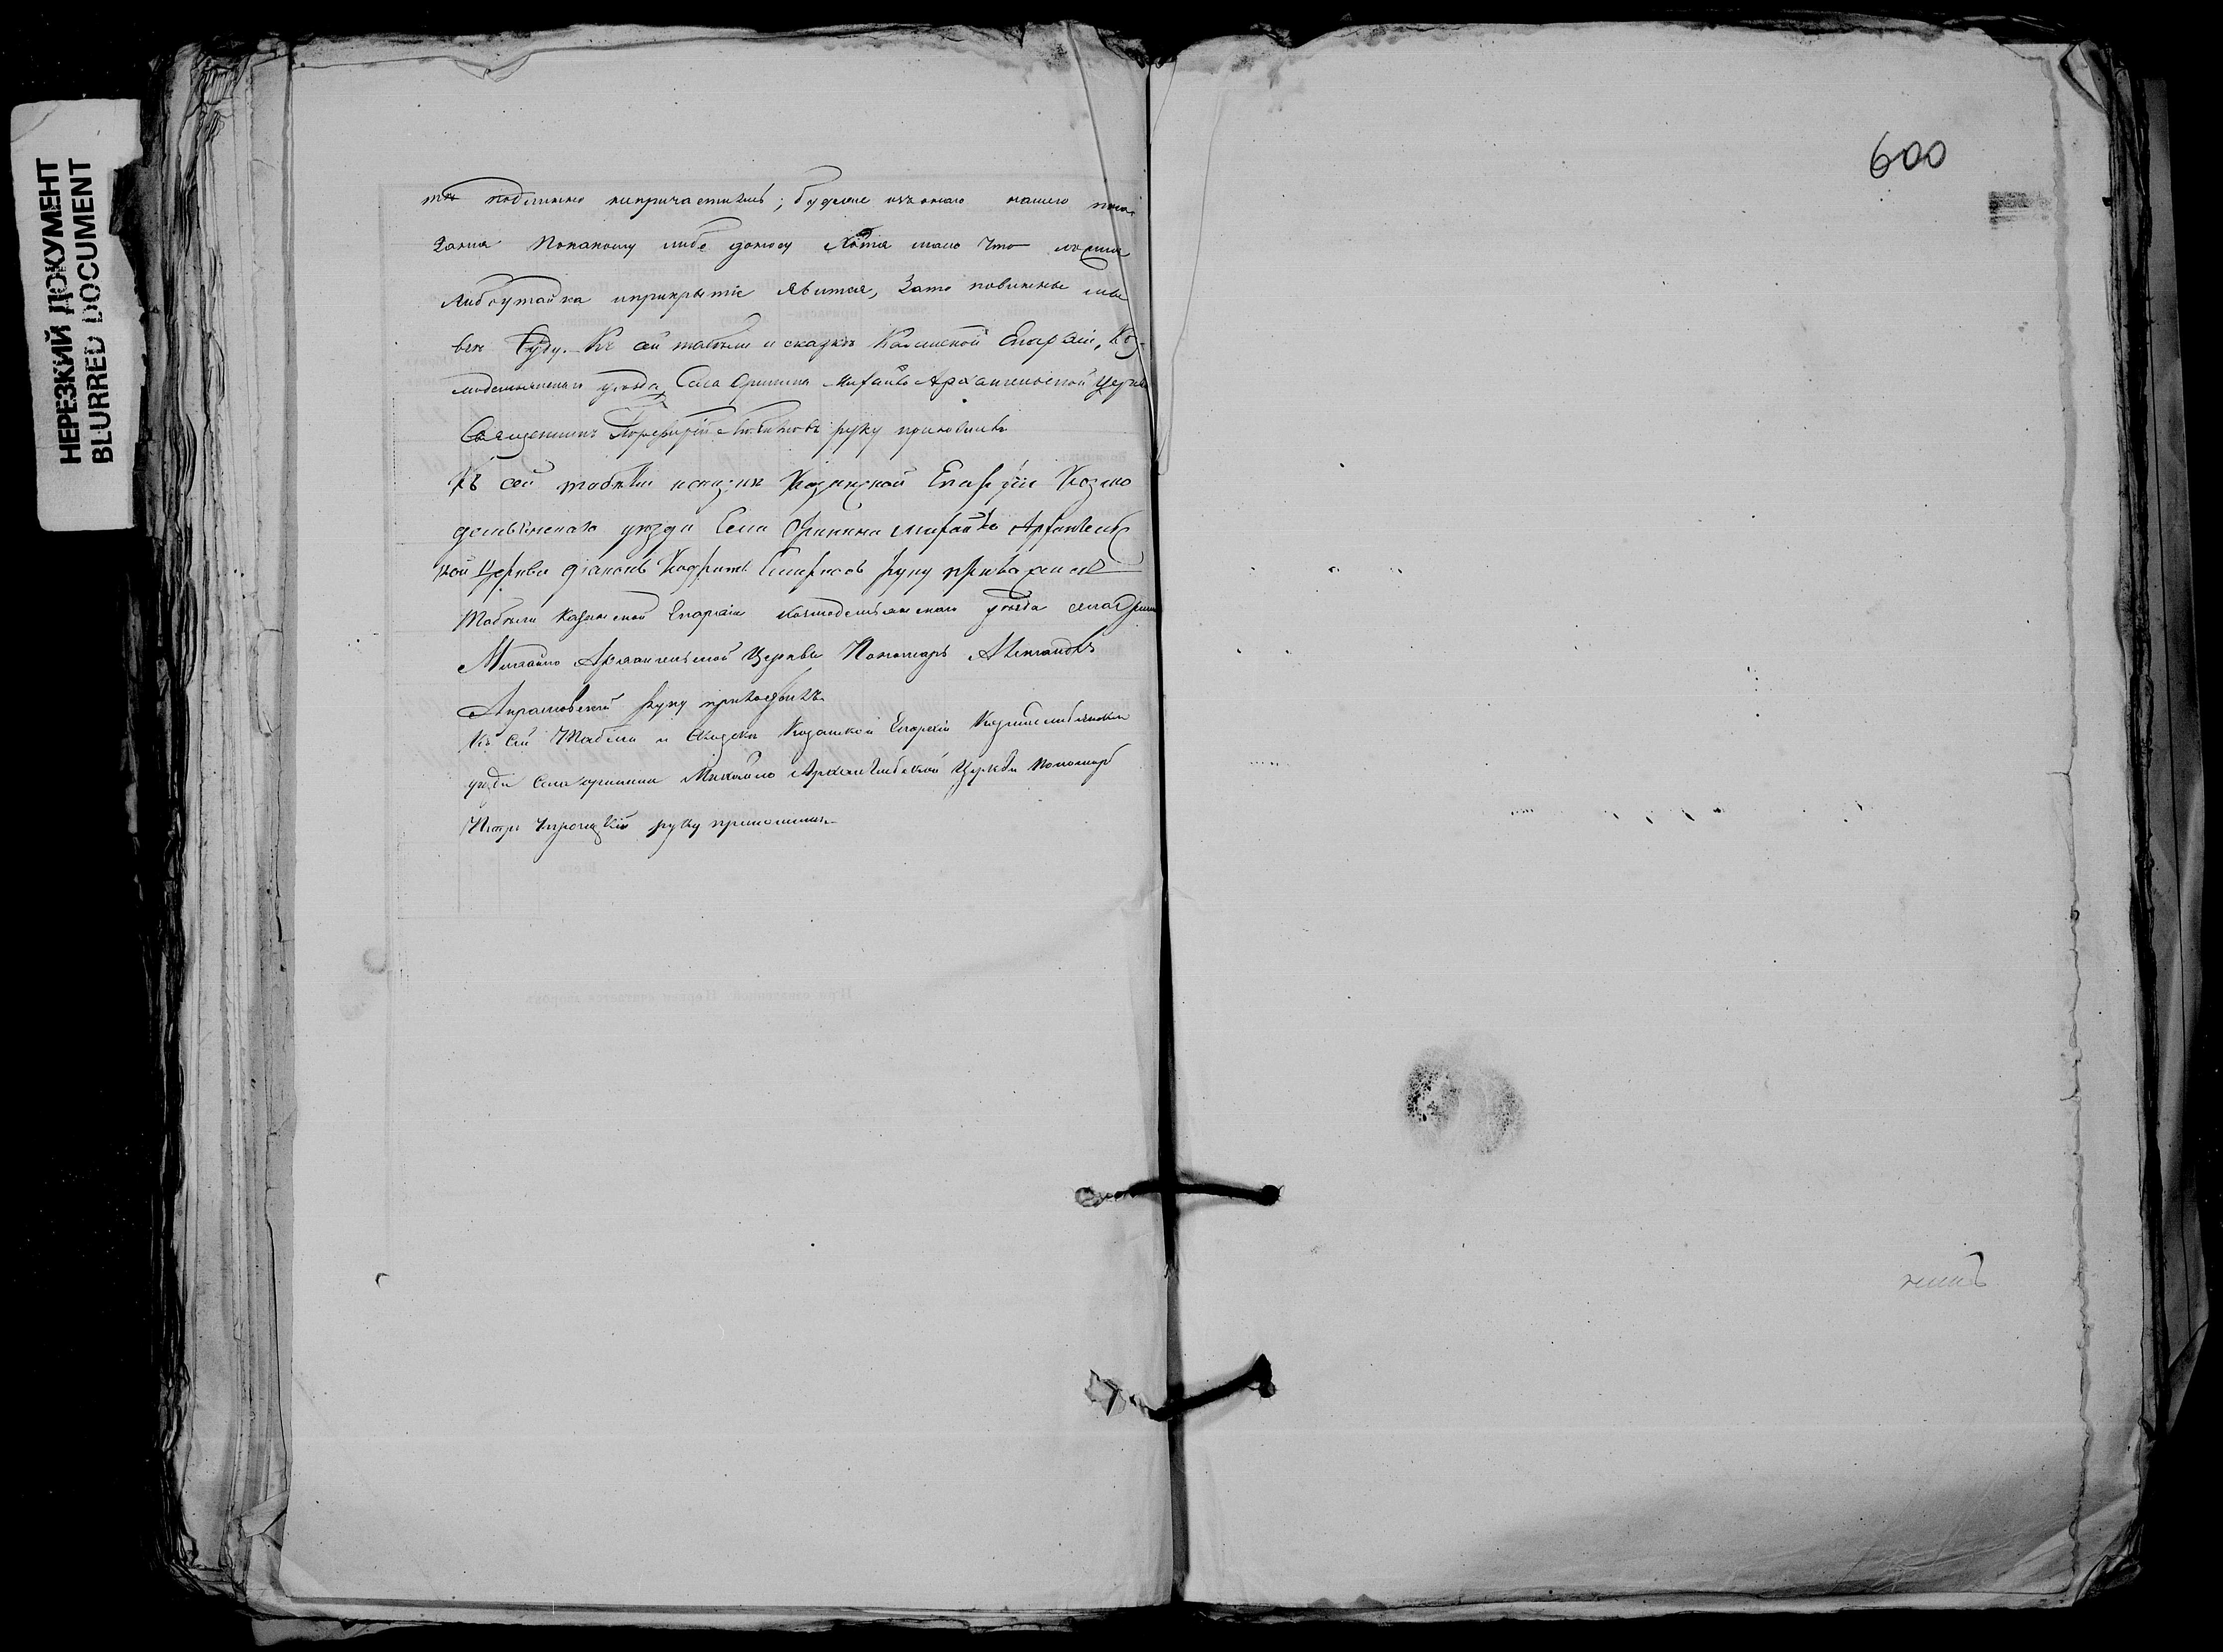 НЕРЕЗКИЙ ДОКУМЕНТ
BLURRED DOCUMENT
600
тѣ подлинно непричастились; будеже изъ онаго нашего пока
занія покакому либо доносу Хотя мало что ложно
либо утайка иприкрытіе явится, Зато повинные
Суду. Къ сей табели и сказкѣ Казанской Епархіи, Коз-
модемьянскаго уѣзда Села Оринина Михайло Архангельской Церкви
Священникъ Порфирій руку приложилъ
Къ сей табѣли и сказкѣ Казанской Епархіи Козмо
демьянскаго уѣзда Села Оринина михайло Архангельс
кой Церкви діаконъ руку приложилъ
Табѣли Казанской Епархіи козмодемьянскаго уѣзда села
Михайло Архангельской Церкви Пономарь
руку приложилъ
Къ Сей Табели и Сказки Казанской Епархіи
уѣзда Села оринина Михайло Архангельской Церкви Пономарь
Петръ руку приложилъ